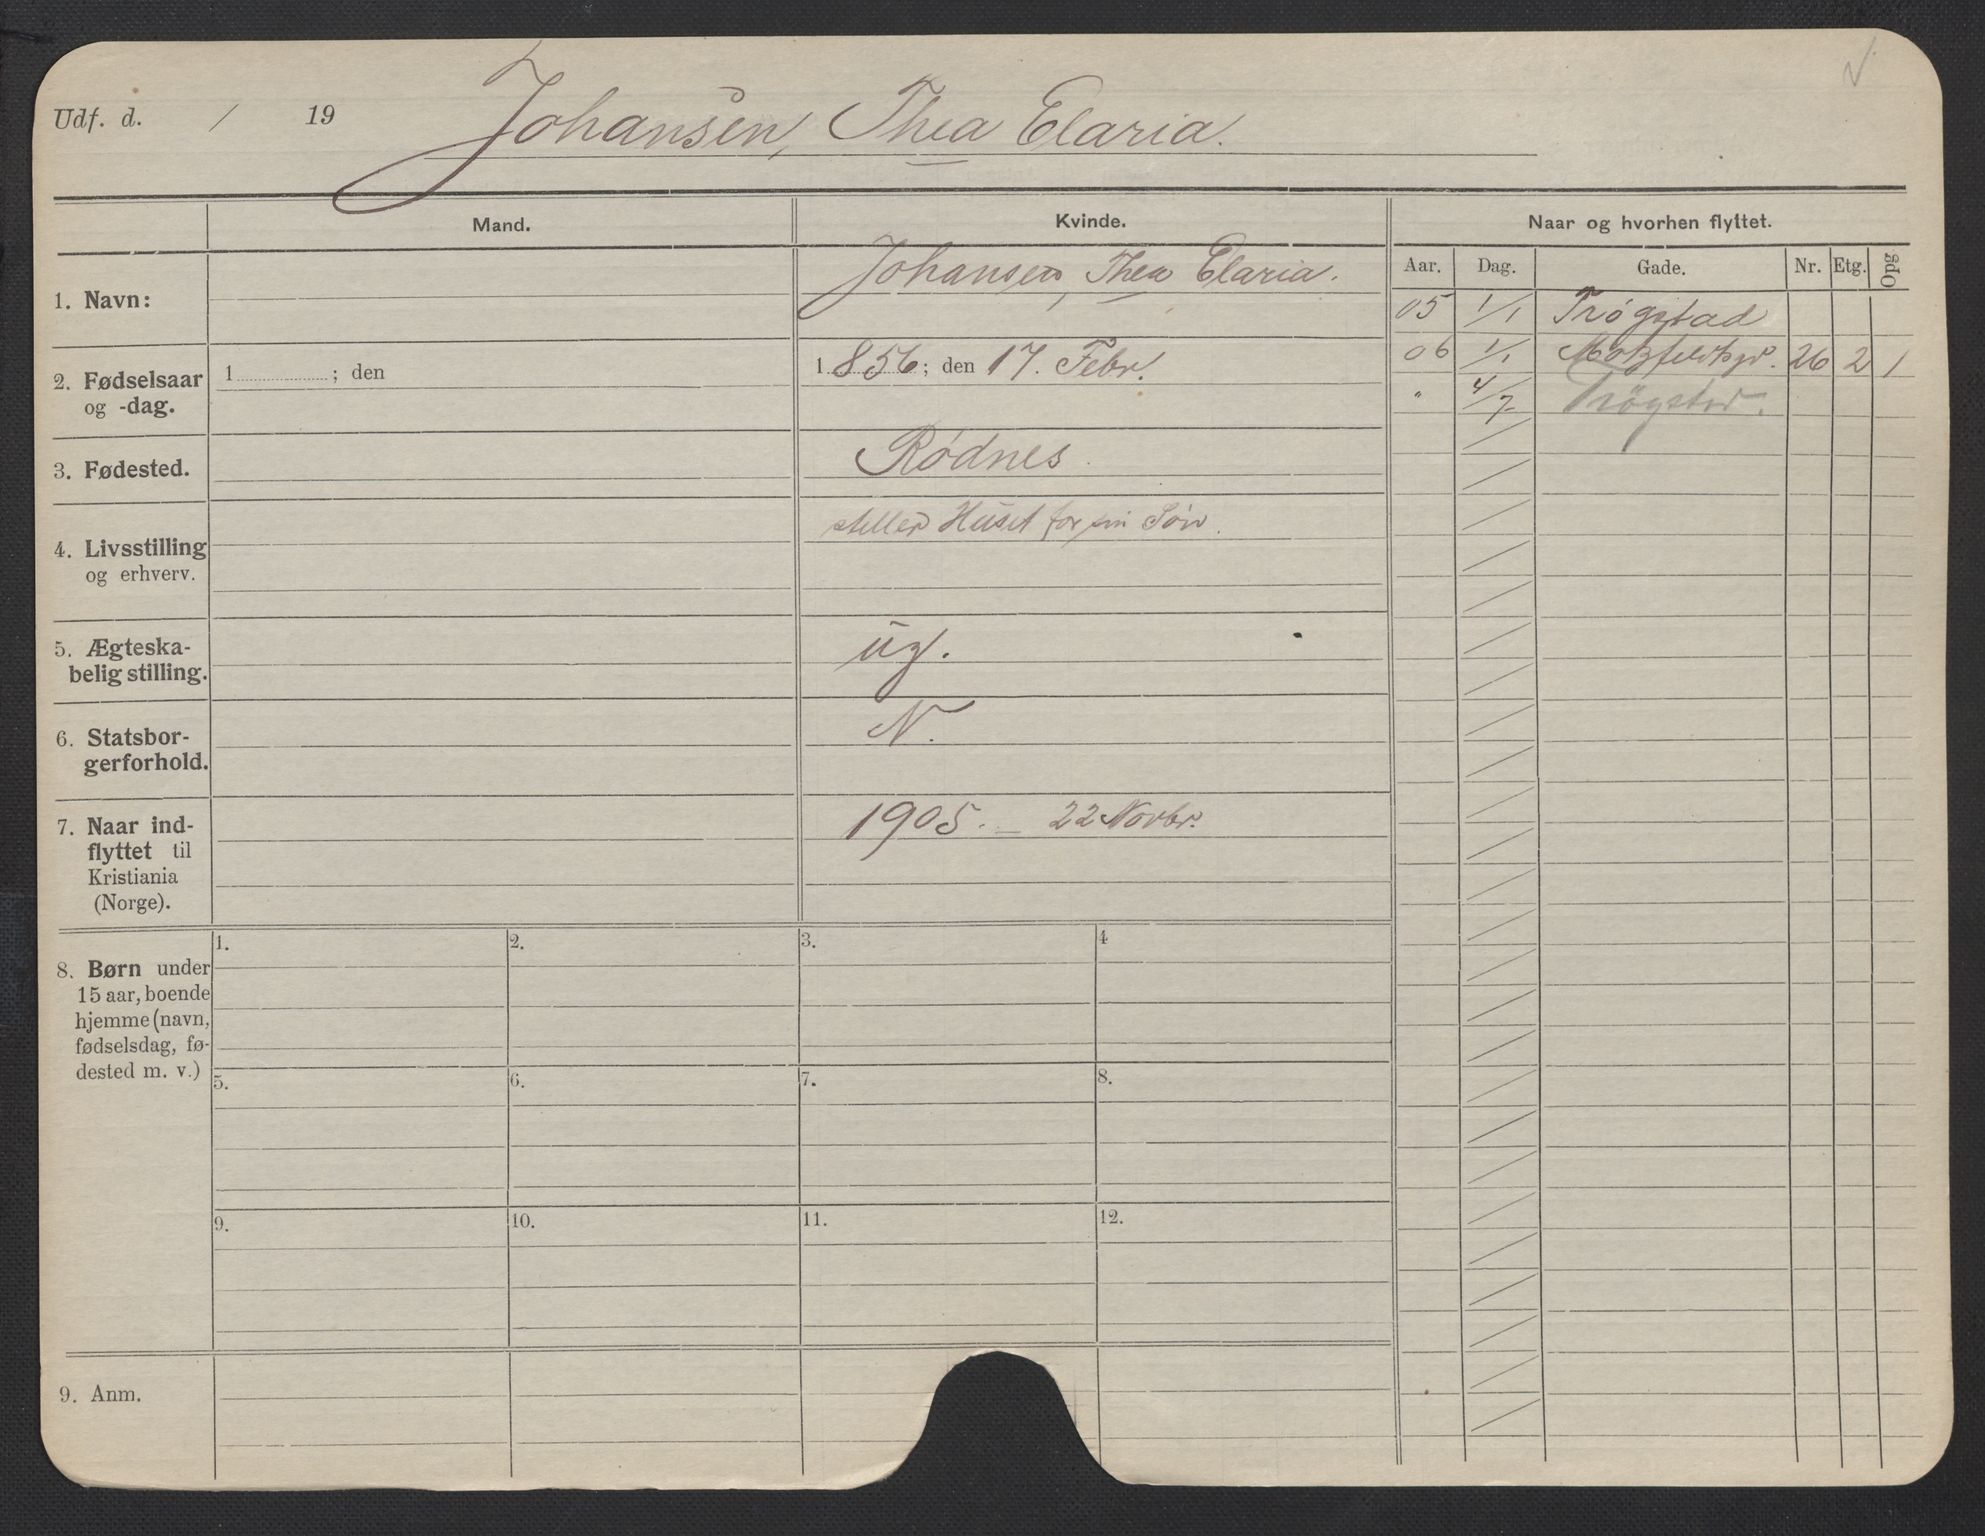 Udf. d. / 19 Johansen, Thea Elaria.
Mand.
Kvinde.
Naar og hvorhen flyttet.
Aar. Dag. Gade. Nr. Etg. Opg
1. Navn:
Johansen, Thea Elaria.
05 1/1 Trøgstad
06 1/1 Motzfeldtsgd. 26 2 1
" 4/7 Trøgstad.
2. Fødselsaar
og -dag.
1 ; den
1856; den 17. Febr.
3. Fødested.
Rødnes.
4. Livsstilling
og erhverv.
steller Huset for sin Søn.
5. Ægteska-
belig stilling.
ug.
6. Statsbor-
gerforhold.
N.
7. Naar ind-
flyttet til
Kristiania
(Norge).
1905. – 22 Novbr.
8. Børn under
15 aar, boende
hjemme (navn,
fødselsdag, fø-
dested m. v.)
1. 2. 3. 4
5. 6. 7. 8.
9. 10. 11. 12.
9. Anm.